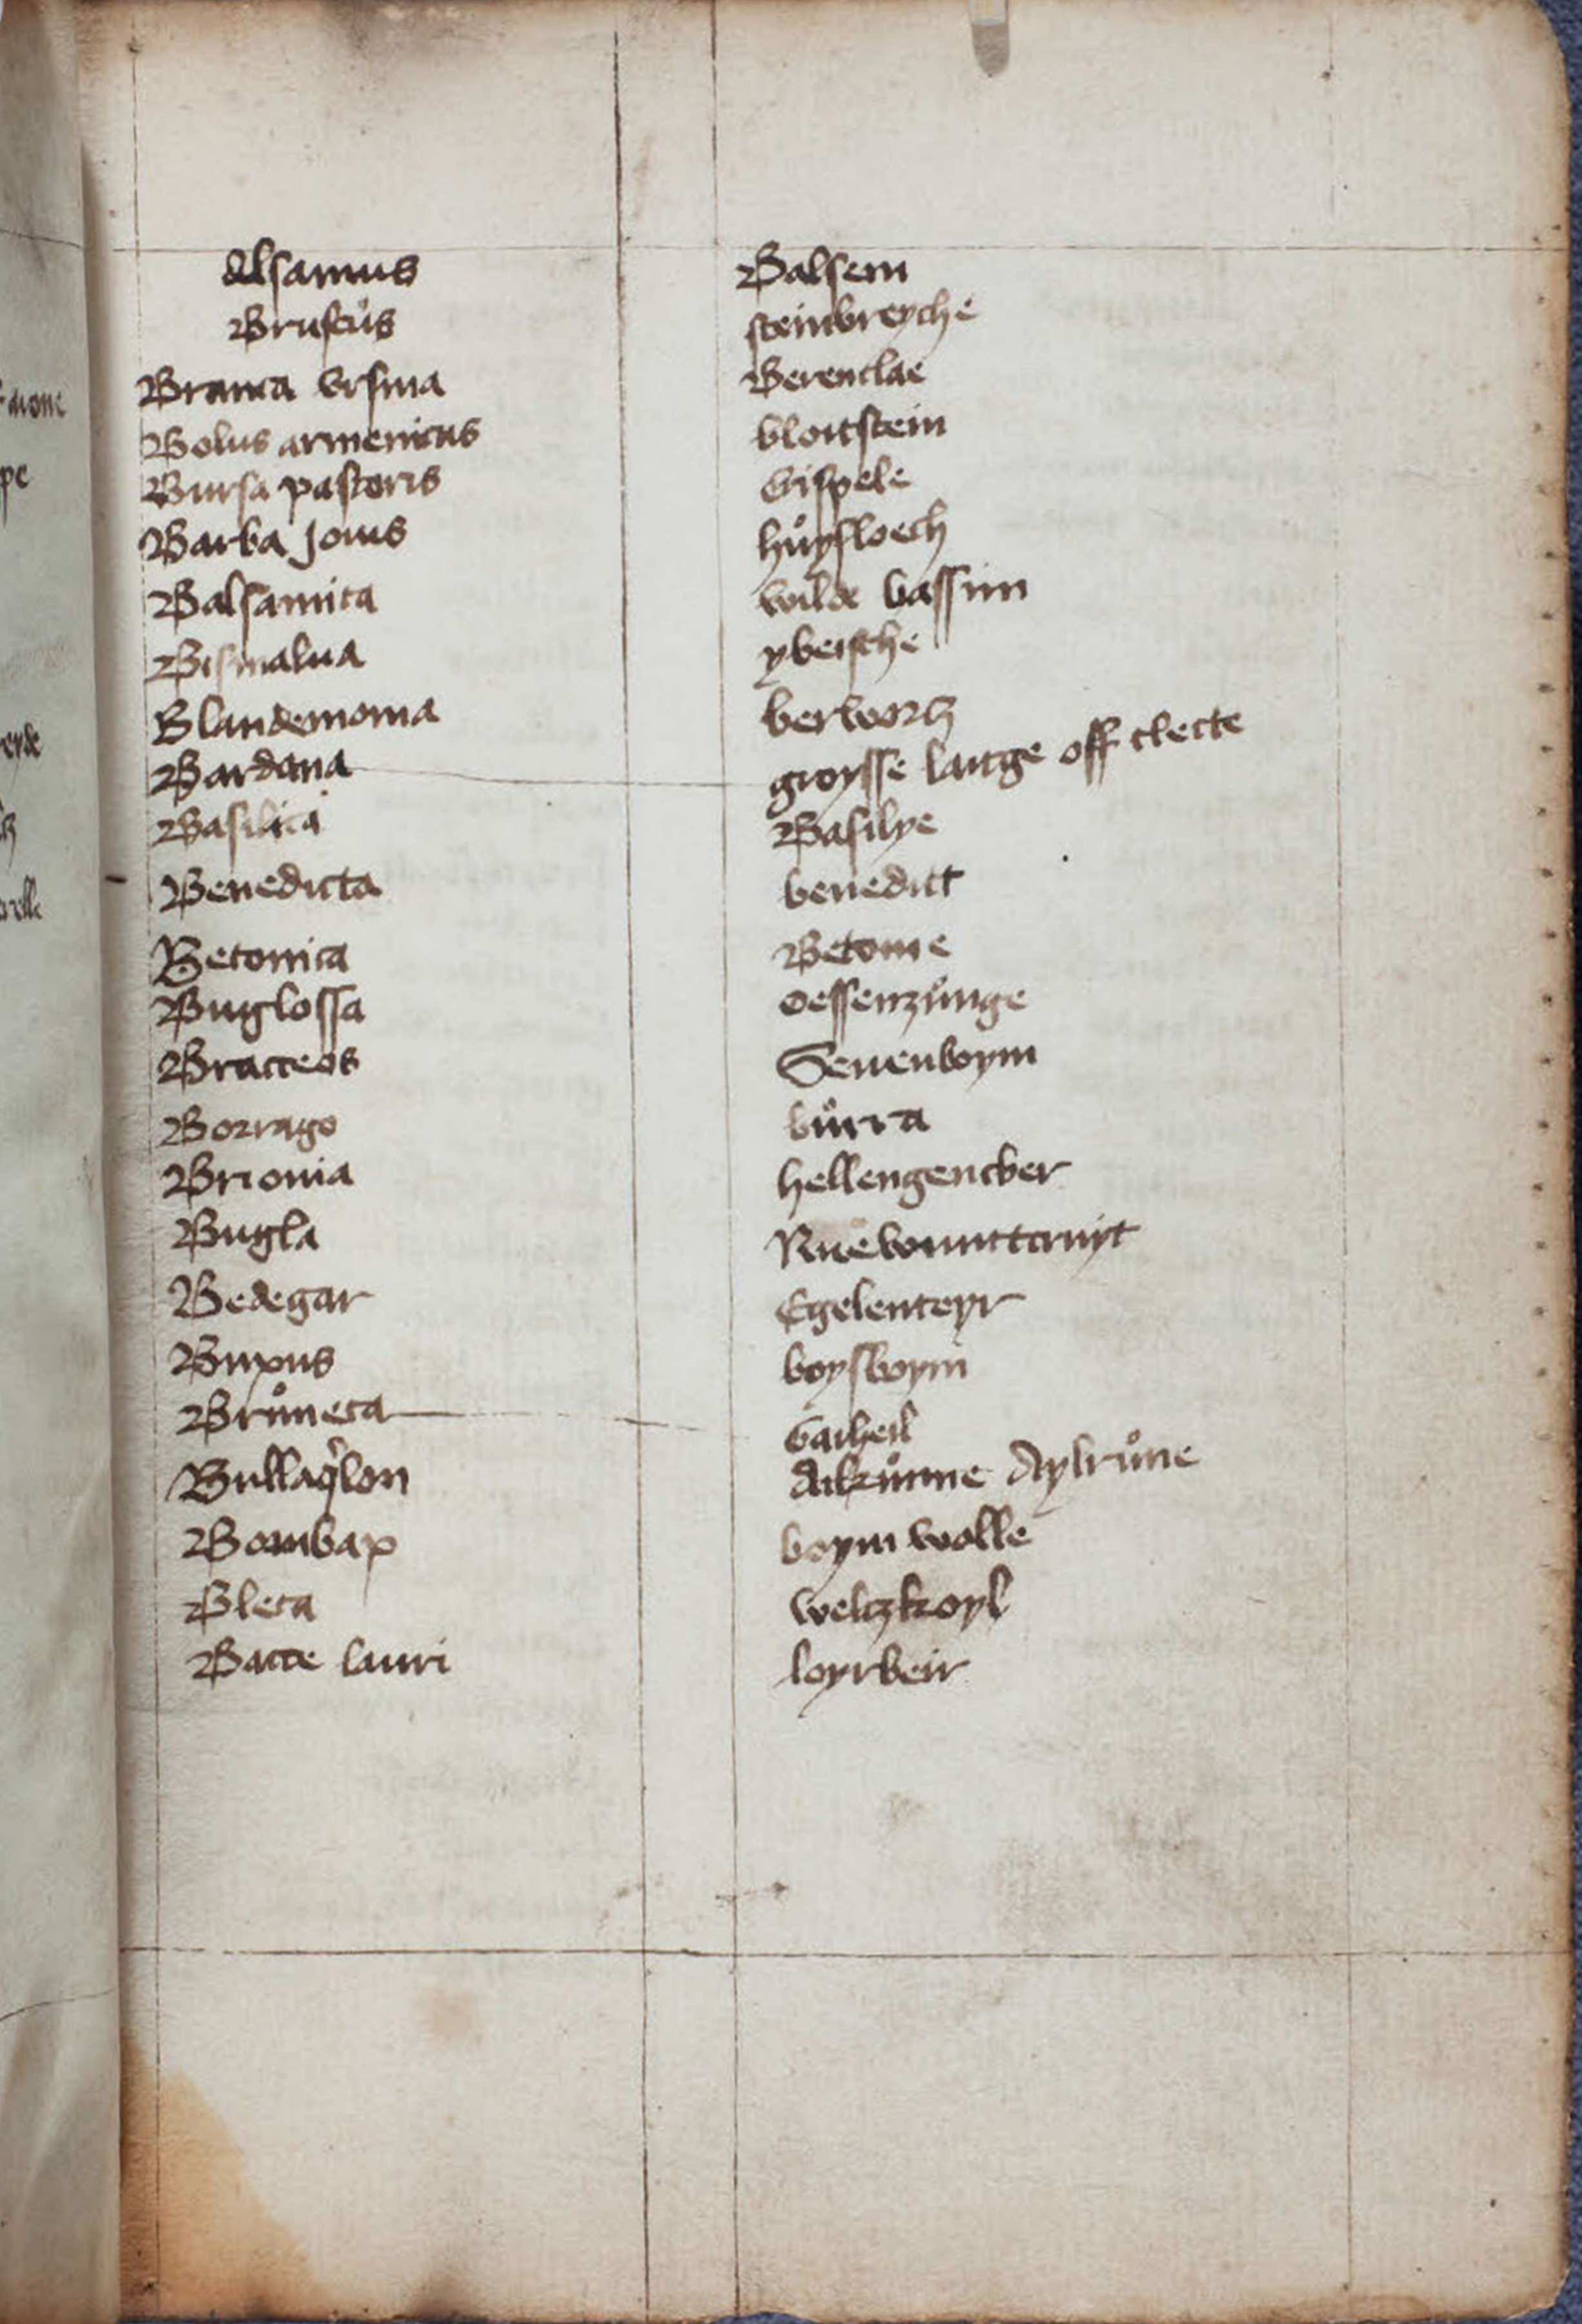 alsamus Balsem
Bruscus steinbreyche
Branca vrsina Berenclae
Bolus armenicus bloitstein
Bursa pastoris vispele
Barba Jouis huysloech
Balsamita wilde bassim
Bismalua ybeische
Blandemonia berwortz
Bardana groysse latige off clecte
Basilica Basilye
Benedicta benedict
Betonica Betonie
Buglossa oessenzůnge
Bracteos Seuenboym
Borrago bůrra
Brionia hellengencker
Bugla
Bedegar Egelenteyr
Buxus boysboym
Brůneta Gaiheil
Alrůnne Aylrůne
Bombax boym wolle
Bleta weltzkoyl
Bacce lauri loyrbeir